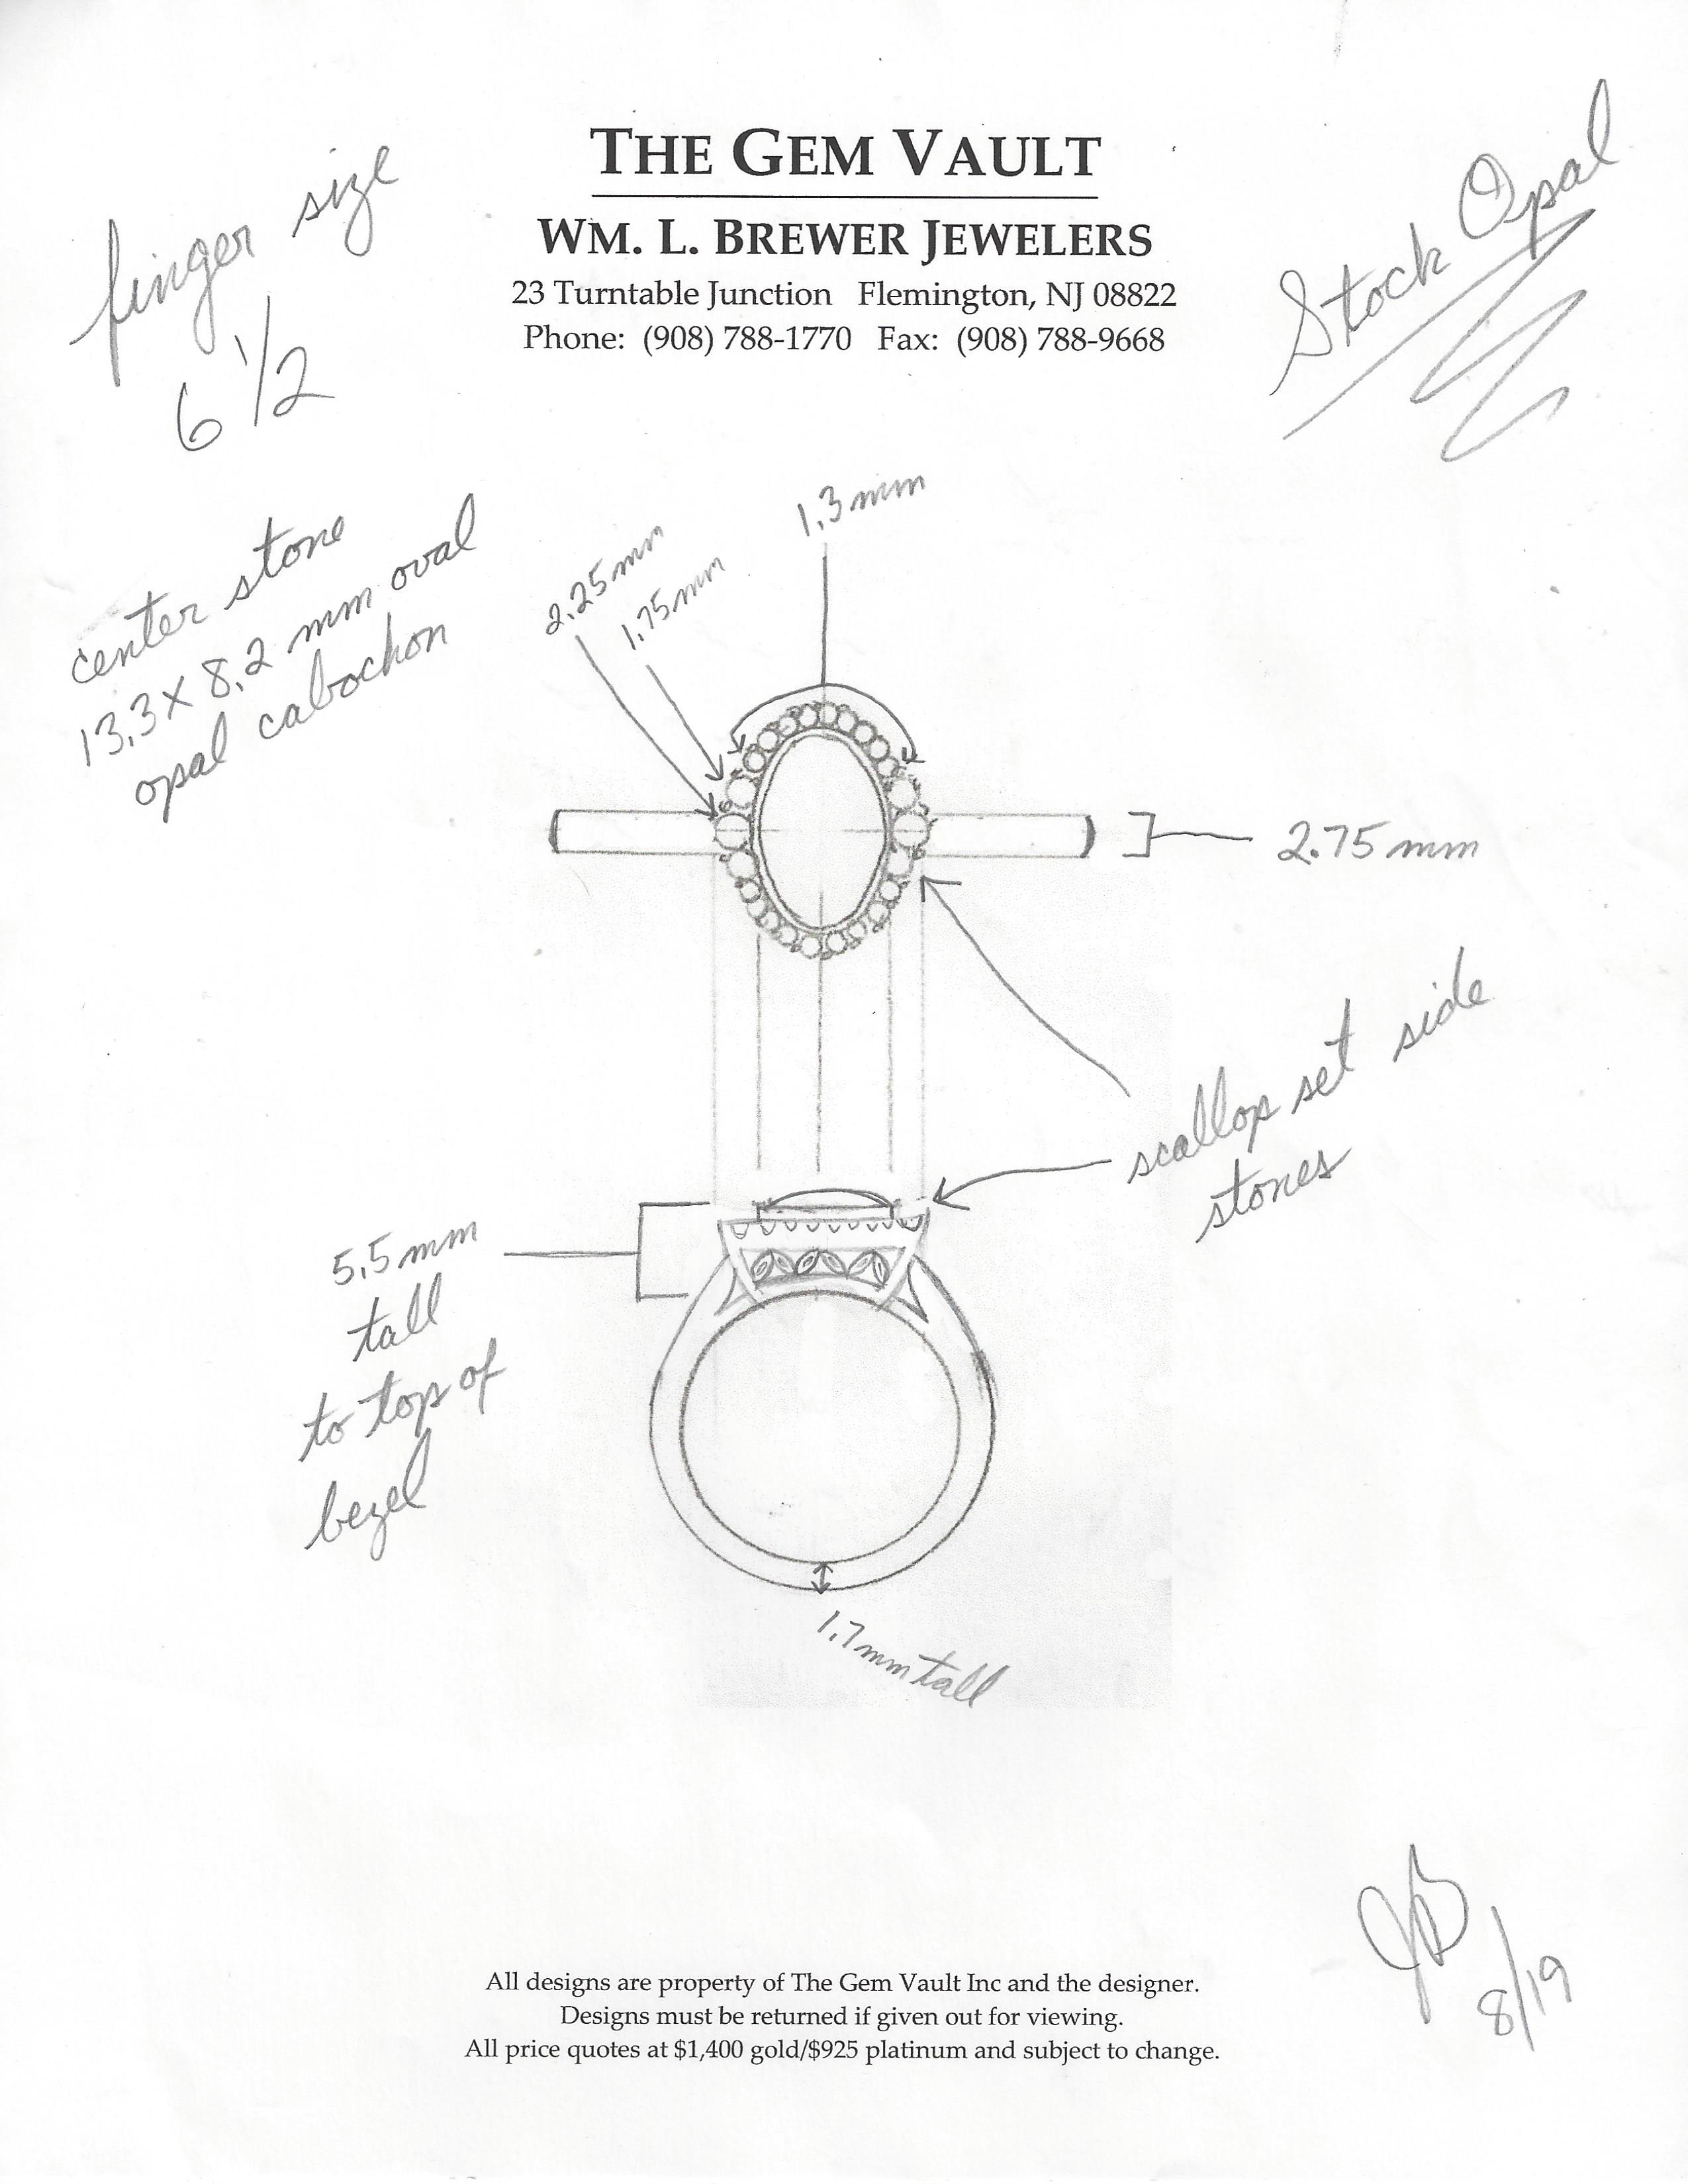 THE GEM VAULT
WM. L. BREWER JEWELERS
23 Turntable Junction Flemington, NJ 08822
Phone: (908) 788-1770 Fax: (908) 788-9668
finger size
6 1/2
Stock Opal
center stone
13.3 X 8.2 mm oval
opal cabochon
2.25mm
1.75mm
1.3mm
2.75mm
scallop set side
stones
5.5mm
tall
to top of
bezel
1.7mm tall
JB
8/19
All designs are property of The Gem Vault Inc and the designer.
Designs must be returned if given out for viewing.
All price quotes at $1,400 gold/$925 platinum and subject to change.